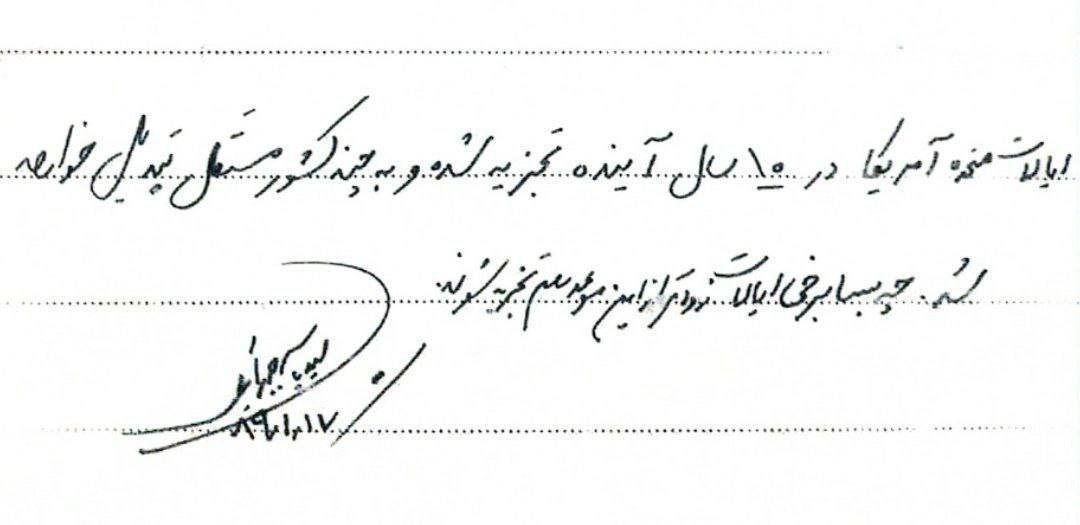 ایالات متحده آمریکا در ۱۵ سال آینده تجزیه شده و به چند کشور مستقل تبدیل خواهد
شد. چه بسا برخی ایالات زودتر از این موعد هم تجزیه شوند.
سید
۸۹.۱.۱۷